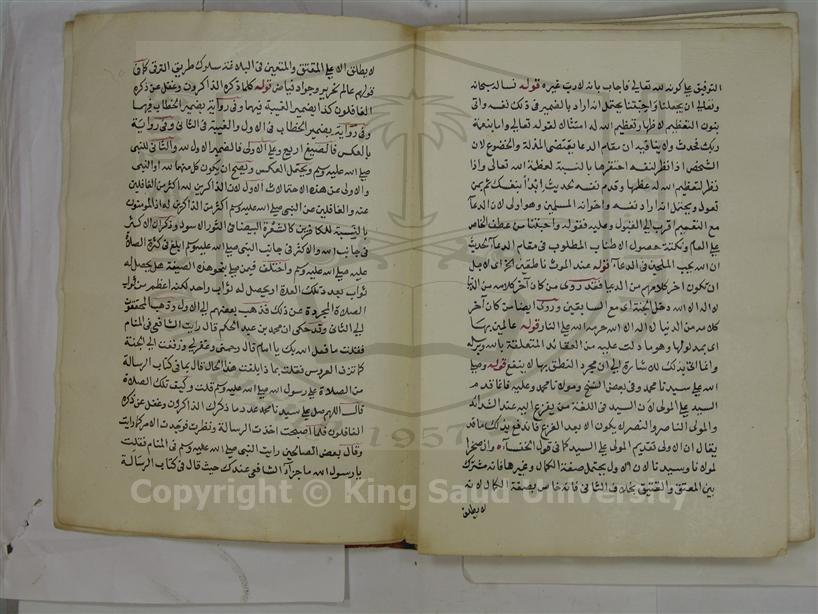 التوفيق على كونه لله تعالى فاجاب بانه لا رب غيره قوله نساله سبحانه
وتعالى ان يجعلنا واحبتنا يحتمل انه اراد بالضمير في ذلك نفسه واتى
بنون التعظيم لاظهار تعظيم الله له امتثالا لقوله تعالى واما بنعمة
ربك فحدث ولا ينافيه ان مقام الدعا يقتضى المذلة والخضوع لان
الشخص اذا نظر لنفسه احتقرها بالنسبة لعظمة الله تعالى واذا
نظر لتعظيم الله له عظمها وقدم نفسه لحديث ابدأ بنفسك ثم بمن
تعول ويحتمل انه اراد نفسه واخوانه المسلمين وهو اولى لان الدعا
مع التعميم اقرب الى القبول وعليه فقوله واحبتنا من عطف الخاص
على العام ونكتته حصول الاطناب المطلوب في مقام الدعا لحديث
ان الله يحب الملحين في الدعا قوله عند الموت ناطقين الخ اى لاجل
ان تكون اخر كلامهم من الدنيا فقد روى من كان آخر كلامه من الدنيا
لا اله الا الله دخل الجنة اى مع السابقين وروى ايضا من كان آخر
كلامه من الدنيا لا اله الا الله حرمه الله على النار قوله عالمين بها
اى بمدلولها وهو ما دلت عليه من العقائد المتعلقة بالله وبرسله
وانما اتى بذلك للاشارة الى ان مجرد النطق بها لا ينفع قوله وصلى
الله على سيدنا محمد وفي بعض النسخ ومولانا محمد وعليه فانما قدم
السيد على المولى لان السيد في اللغة من يفزع اليه عند الشدائد
والمولى الناصر والنصر يكون بعد الفزع فاندفع بذلك ما قد
يقال ان الاولى تقديم المولى على السيد كما في قول الخنساء وان صخرا
لمولانا وسيدنا لان الاول يحتمل صفة الكمال وغيرها فانه مشترك
بين المعتق والعتيق بخلاف الثانى فانه خاص بصفة الكمال لانه
لا يطلق
لا يطلق الا على المعتق والمتعين في البلاغة سلوك طريق الترقى كما في
قولهم عالم نحرير وجواد فياض قوله كلما ذكره الذاكرون وغفل عن ذكره
الغافلون كذا بضمير الغيبة فيهما وفي رواية بضمير الخطاب فيهما
وفي رواية بضمير الخطاب في الاول والغيبة في الثانى وفي رواية
بالعكس فالصيغ اربع وعلى الاولى فالضمير الاول لله والثانى للنبى
صلى الله عليه وسلم ويحتمل العكس ويصح ان يكون كل منهما لله او للنبى
والاولى من هذه الاحتمالات الاول لان الذاكرين لله اكثر من الغافلين
عنه والغافلين عن النبى صلى الله عليه وسلم اكثر من الذاكرين له اذ المومنون
بالنسبة للكافرين كالشعرة البيضا في الثور الاسود وذكر الاكثر
في جانب الله والاكثر في جانب النبى صلى الله عليه وسلم ابلغ في كثرة الصلاة
عليه صلى الله عليه وسلم واختلف فيمن صلى بنحو هذه الصيغة هل يحصل له
ثواب بعد تلك العدة او يحصل له ثواب واحد لكنه اعظم من ثواب
الصلاة المجردة عن ذلك فذهب بعضهم الى الاول وذهب المحققون
الى الثانى وقد حكى ان محمد بن عبد الحكم قال رايت الشافعى في المنام
فقلت ما فعل الله بك يا امام قال رحمنى وغفر لى وزففت الى الجنة
كما تزف العروس فقلت بما ذا بلغت هذا الحال قال بما في كتاب الرسالة
من الصلاة على رسول الله صلى الله عليه وسلم قلت وكيف تلك الصلاة
قال اللهم صل على سيدنا محمد عدد ما ذكرك الذاكرون وغفل عن ذكره
الغافلون فلما اصبحت اخذت الرسالة ونظرت فوجدت الامر كما رايت
وقال بعض الصالحين رايت النبى صلى الله عليه وسلم في المنام فقلت
يا رسول الله ما جزاء الشافعى عندك حيث قال في كتاب الرسالة
1957
Copyright © King Saud University